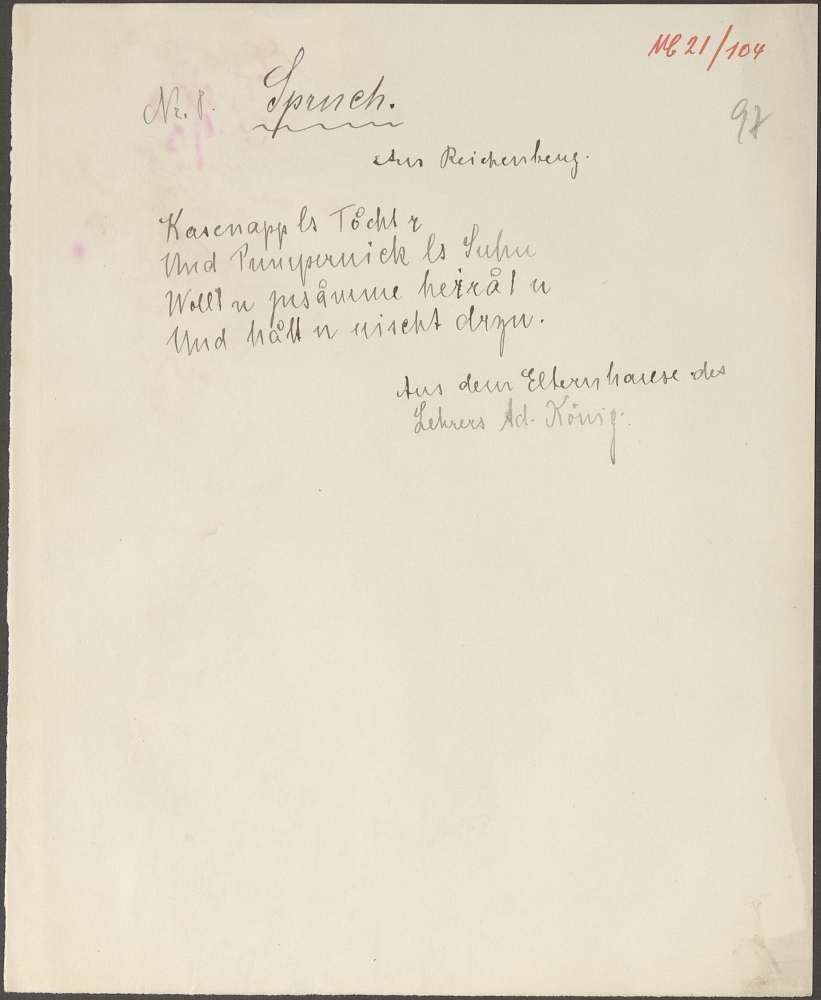 NB 21/104
Nr. 8.
Spruch.
97
Aus Reichenberg.
Kasenapp ls Tåcht r
Und Pumpernick ls Suhn
Wollt n zusåmme heiråt n
Und hått n nischt drzu.
Aus dem Elternhause des
Lehrers Ad. König.